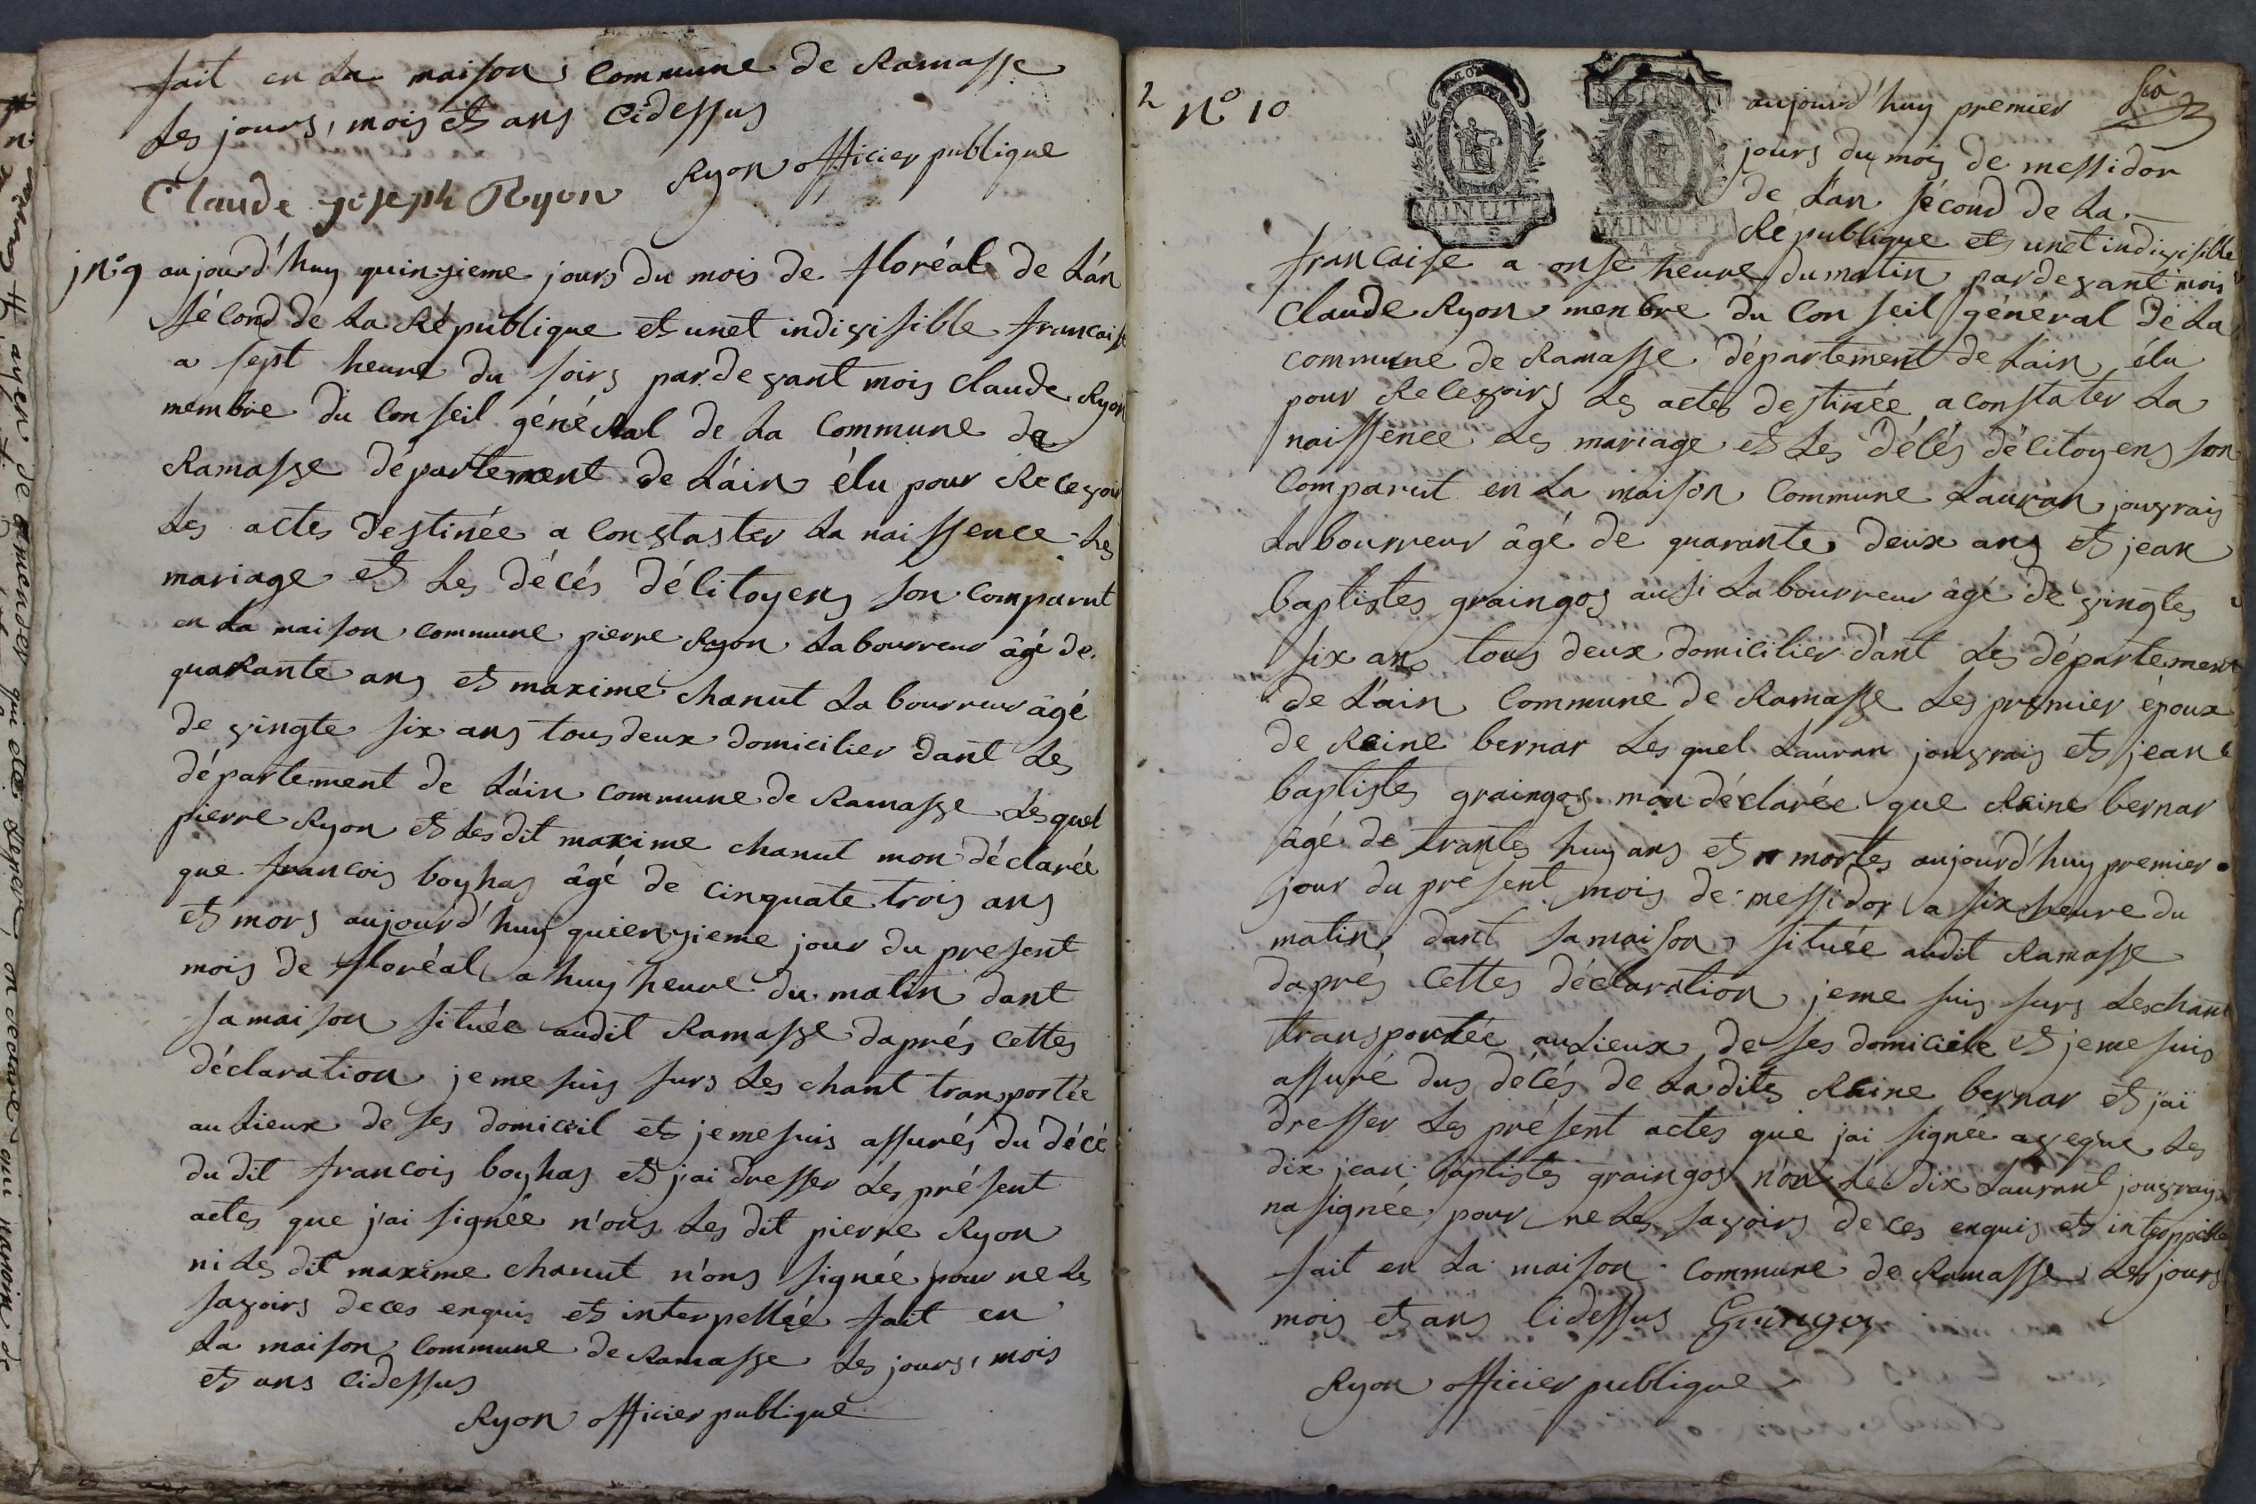 fait en la maison commune de Ramasse
les jours, mois et ans cidessus
Ryon officier publique
Claude joseph Ryon
n° 9 aujourd'huy quinzieme jours du mois de floréal de l'án
sécond de la République et unet indivisible francaise
a sept heure du soirs pardevant mois claude Ryon
membre du Conseil général de la Commune de
Ramasse département de l'áin élu pour Recevoir
les actes destinée a constaster la naissence les
mariage et les décés décitoyens son comparut
en la maison commune pierre Ryon labourreur âgé de
quarante ans et maxime chanut labourreur âgé
de vingte six ans tous deux domicilier dant les
département de l'áin commune de Ramasse lesquel
pierre Ryon et lesdit maxime chanut mon déclarée
que francois boyhas âgé de cinquate trois ans
et mors aujourd'huy quienzieme jour du present
mois de floréal a huy heure du matin dant
sa maison située audit Ramasse daprés cettes
déclaration jeme suis surs les chant transportée
au lieux de ses domiceil et jemesuis assurés du décé
dudit francois boyhas et j'ai dresser les présent
actes que j'ai signée n'ons les dit pierre Ryon
ni les dit maxime chanut n'ons signée pour ne les
savoirs deces enquis et interpellée fait en
la maison commune de Ramasse les jours, mois
et ans cidessus
Ryon officier publique
2 N° 10
MINUTE
4 S
MINUTE
4 S
aujourd'huy premier
jours du mois de messidor
de l'an sécond de la
République et unet indivisible
francaise a onse heure du matin pardevant mois
claude Ryon menbre du Conseil général de la
commune de Ramasse département de l'ain élu
pour Recevoirs les actes destinée a constater la
naissence les mariage et les décés décitoyens son
comparut en la maison commune Lauran jouvrais
labourreur âgé de quarante deux ans et jean
baptistes graingos ausi labourreur âgé de vingtes
six ans tous deux domicilier dánt les département
de l'áin Commune de Ramasse les premier époux
de Reine bernar lesquel Lauran jouvrais et jean
baptistes graingos mon déclarée que Reine bernar
âgé de trantes huy ans et mortes aujourd'huy premier
jour du present mois de messidor a six heure du
matin dant sa maison située audit Ramasse
daprés cettes déclaration jeme suis surs léschant
transportée au lieux de ses domicile et jemesuis
assuré dus décés de ladites Reine bernar et jai
dresser les présent actes que jai signée avecque les
dix jean baptistes graingos n'on les dix Laurant jouvrais
na signée pour ne les savoirs de ces enquis et interppellée
fait en la maison commune de Ramasse les jours
mois et ans cidessus Gringoz
Ryon officier publique